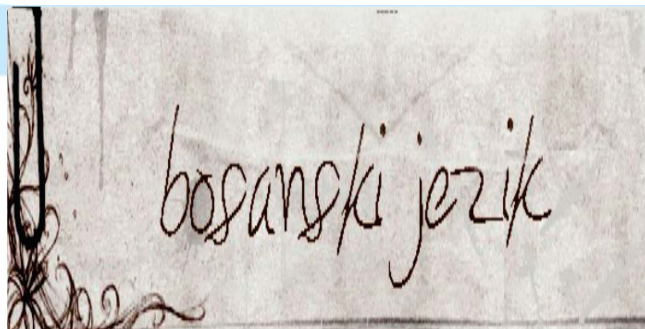 bosanski jezik